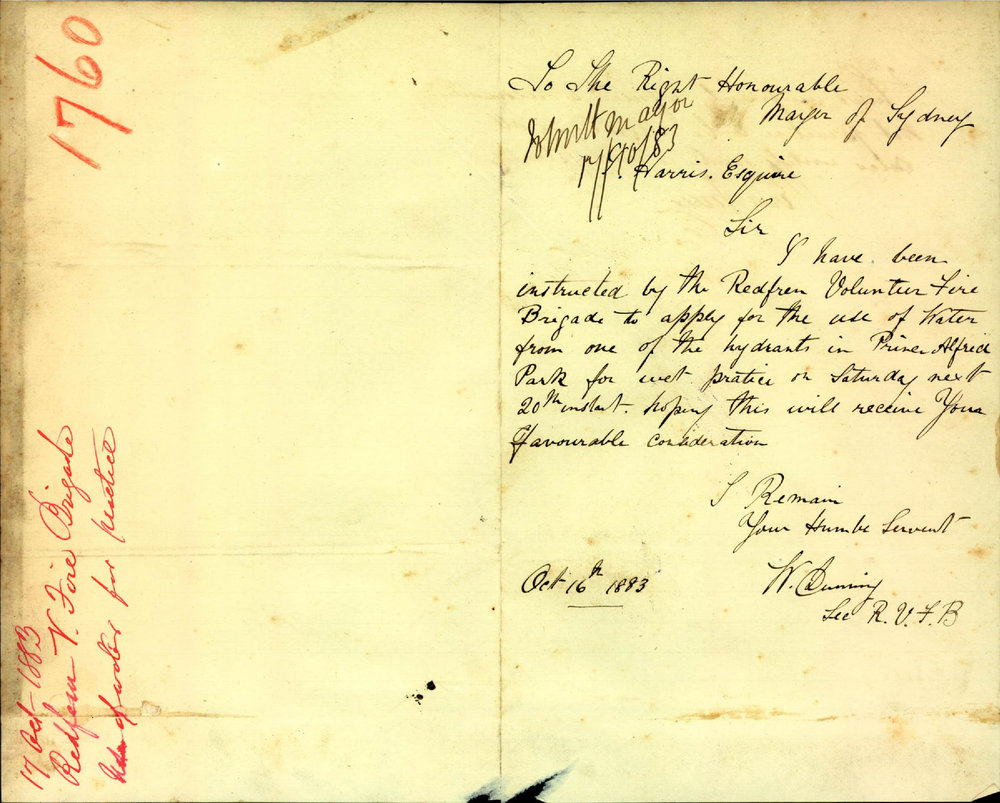 1760
17 Oct 1883
Redfern V. Fire Brigade
Use of water for practice
To The Right Honourable
Mayor of Sydney
Mayor
17/10/83
J. Harris. Esquire
Sir
I have been
instructed by the Redfren Volunteer Fire
Brigade to apply for the use of Water
from one of the hydrants in Prince Alfred
Park for wet pratice on Saturday next
20th instant. hoping this will receive Your
favourable consideration
I Remain
Your Humbe Servent
Oct 16th 1883
W.
Sec R. V. F. B